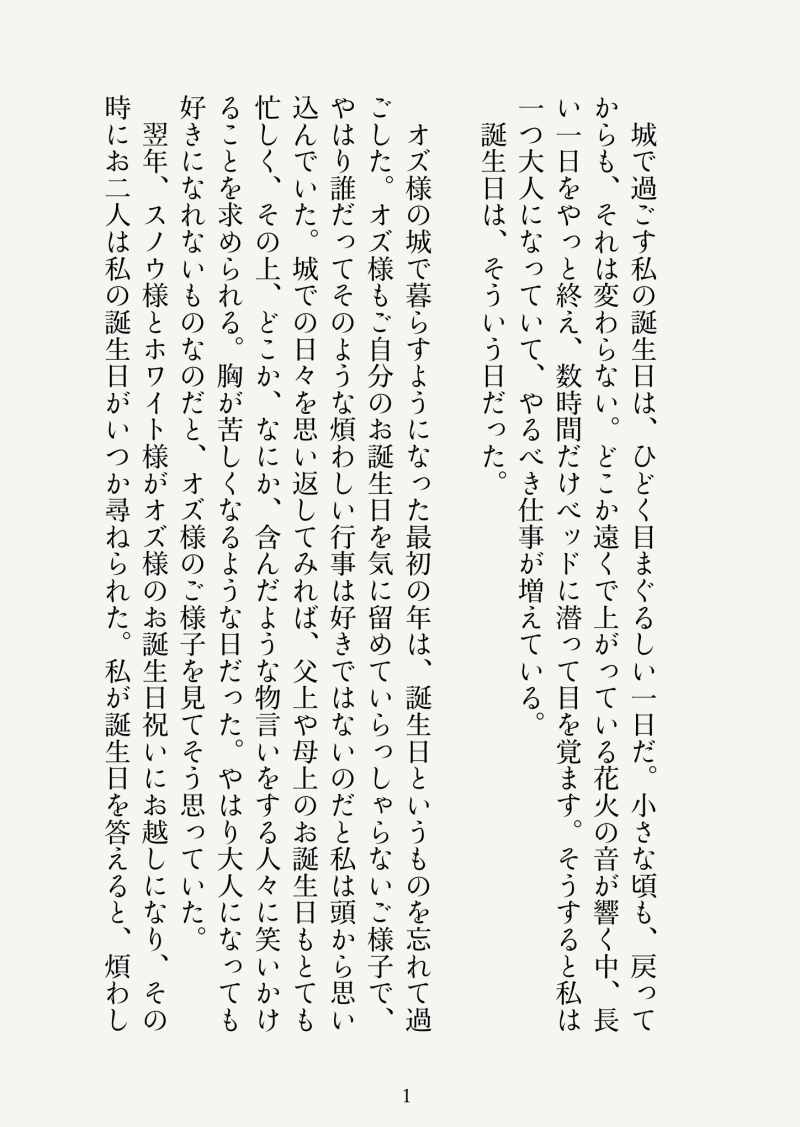 城で過ごす私の誕生日は、ひどく目まぐるしい一日だ。小さな頃も、戻って
からも、それは変わらない。どこか遠くで上がっている花火の音が響く中、長
い一日をやっと終え、数時間だけベッドに潜って目を覚ます。そうすると私は
一つ大人になっていて、やるべき仕事が増えている。
誕生日は、そういう日だった。
オズ様の城で暮らすようになった最初の年は、誕生日というものを忘れて過
ごした。オズ様もご自分のお誕生日を気に留めていらっしゃらないご様子で、
やはり誰だってそのような煩わしい行事は好きではないのだと私は頭から思い
込んでいた。城での日々を思い返してみれば、父上や母上のお誕生日もとても
忙しく、その上、どこか、なにか、含んだような物言いをする人々に笑いかけ
ることを求められる。胸が苦しくなるような日だった。やはり大人になっても
好きになれないものなのだと、オズ様のご様子を見てそう思っていた。
翌年、スノウ様とホワイト様がオズ様のお誕生日祝いにお越しになり、その
時にお二人は私の誕生日がいつか尋ねられた。私が誕生日を答えると、煩わし
1